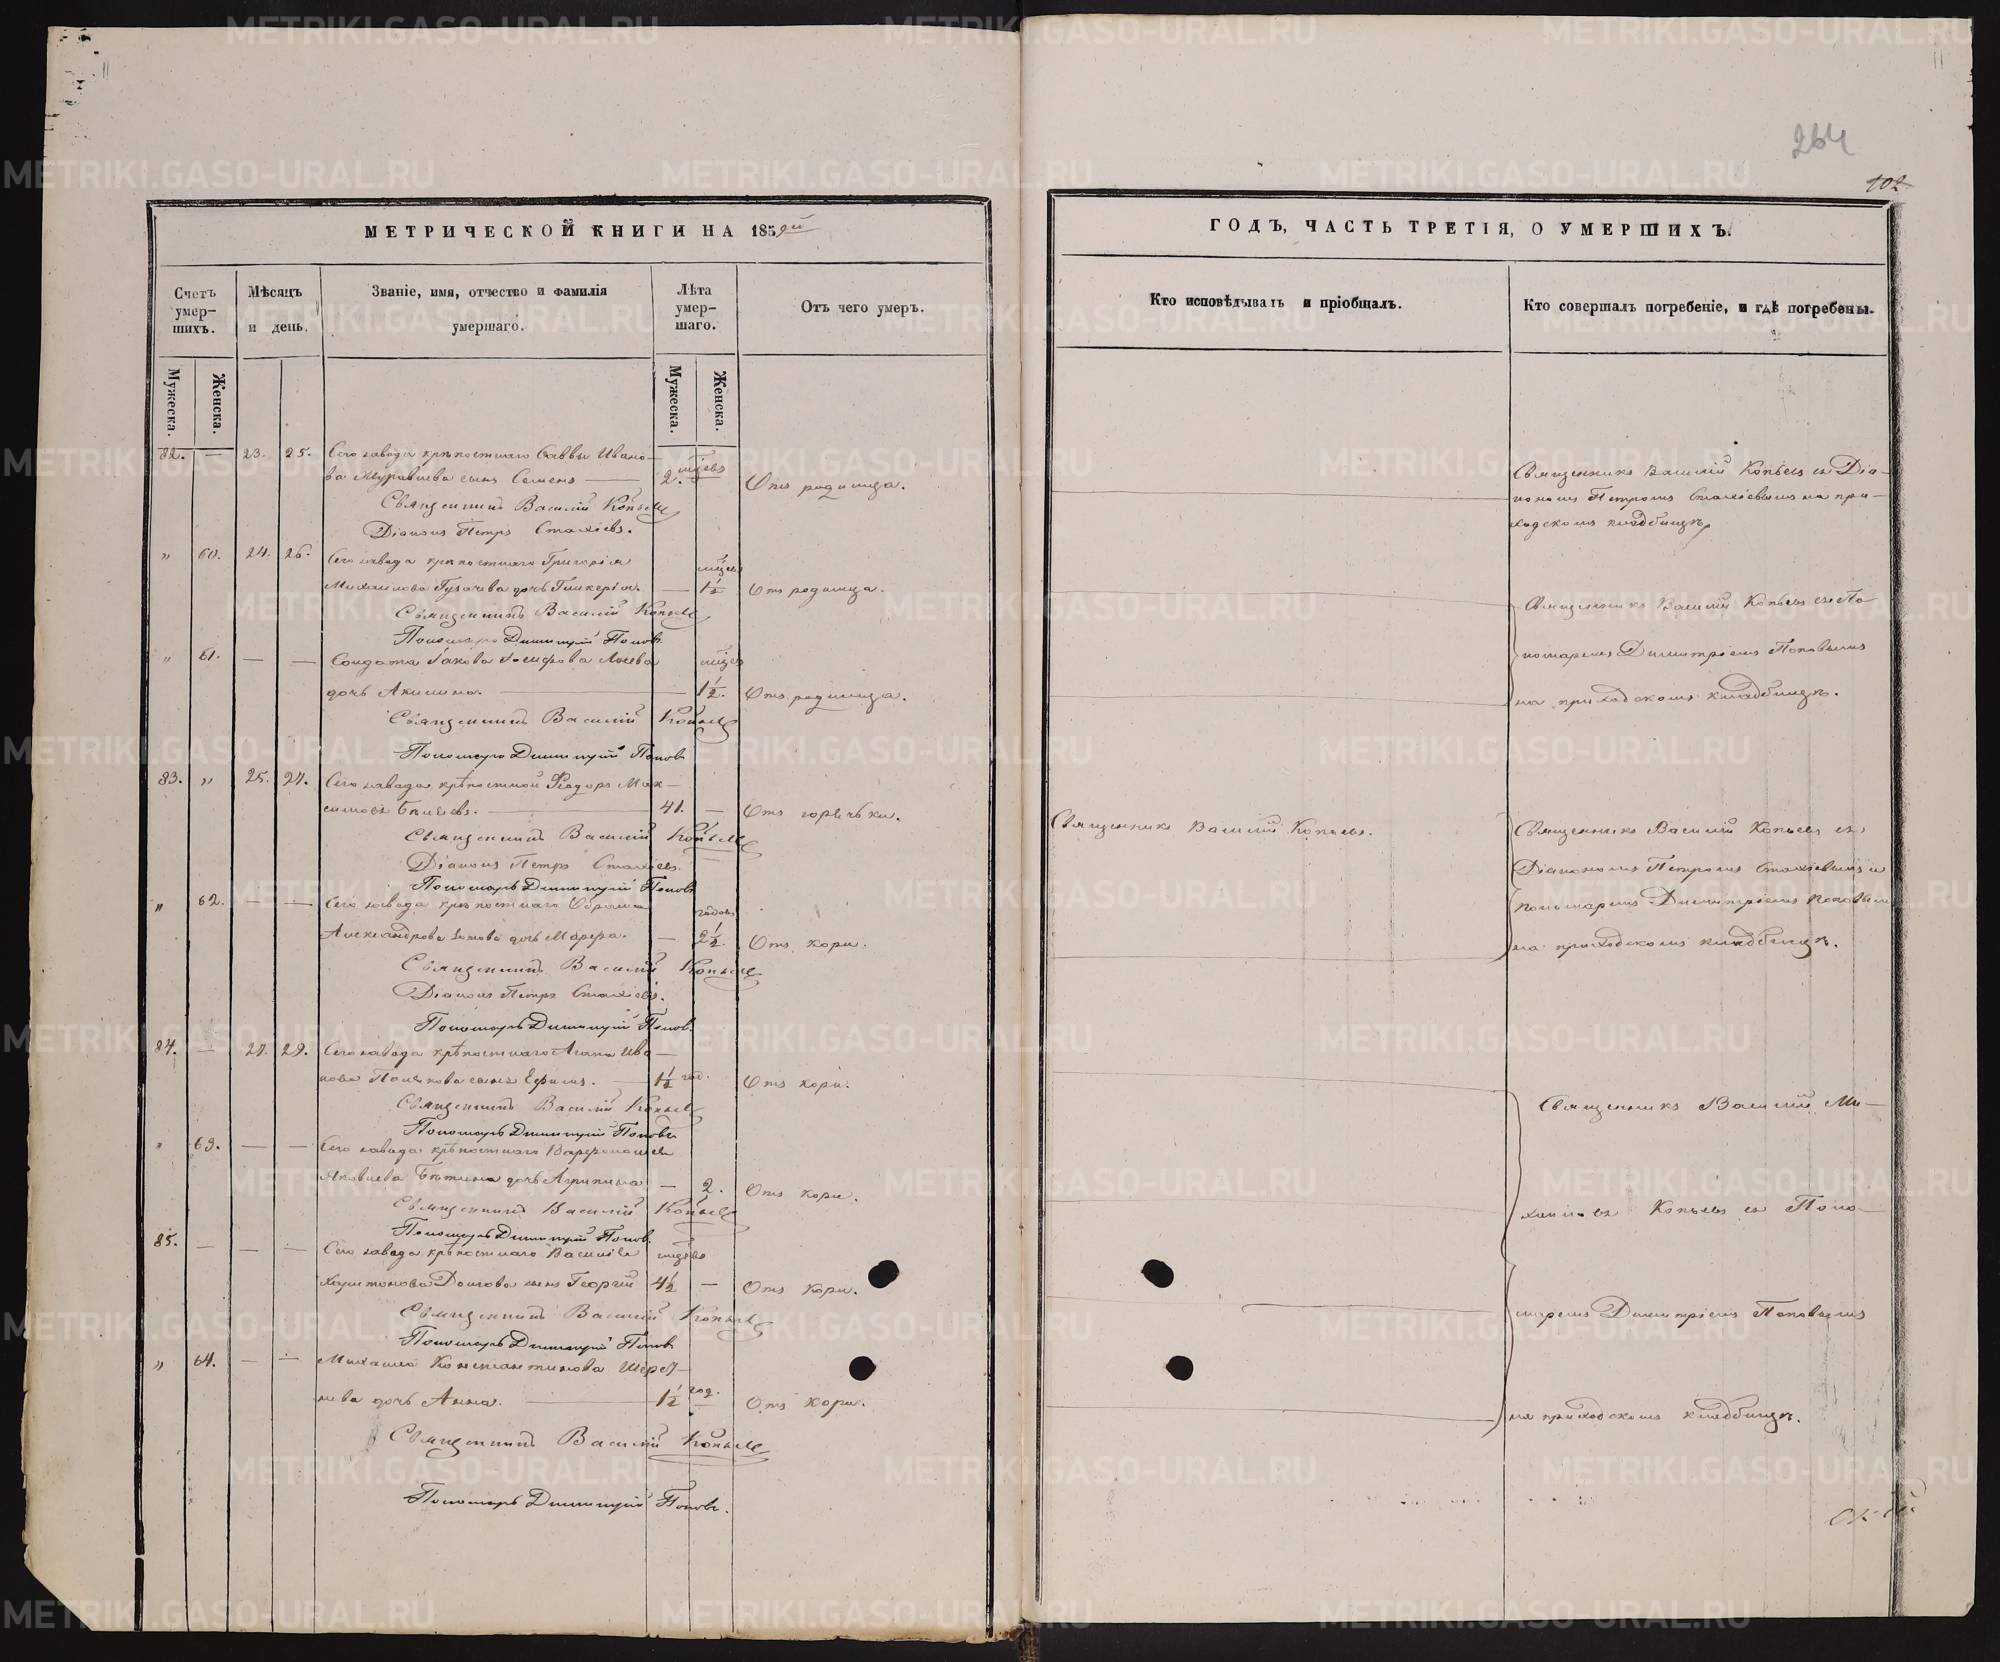 264
102
МЕТРИЧЕСКОЙ КНИГИ НА 1859й
ГОДЪ, ЧАСТЬ ТРЕТІЯ, О УМЕРШИХЪ.
Счетъ умер-шихъ.
Мѣсяцъ и день.
Званіе, имя, отчество и фамилія умершаго.
Лѣта умер-шаго.
Отъ чего умеръ.
Кто исповѣдывалъ и пріобщалъ.
Кто совершалъ погребеніе, и гдѣ погребены.
Мужеска.
Женска.
Мужеска.
Женска.
82. — 23. 25. Сего завода крѣпостнаго Саввы Ивано-
ва Журавлева сынъ Семенъ — 2. мцѣвъ Отъ родимца.
Священникъ Василій Копьевъ
Діаконъ Петръ Стахіевъ.
Священникъ Василій Копьевъ съ Діа-
кономъ Петромъ Стахіевымъ на при-
ходскомъ кладбищѣ
„ 60. 24. 26. Сего завода крѣпостнаго Григорія
Михайлова дочь Гликерія. — 1½ мцѣв Отъ родимца.
Священникъ Василій Копьевъ
Пономарь Димитрій Поповъ
„ 61. — — Солдата Іакова Іосифова
дочь Акилина. — 1½. мцѣв Отъ родимца.
Священникъ Василій Копьевъ
Пономарь Димитрій Поповъ
Священникъ Василій Копьевъ съ По-
номаремъ Димитріемъ Поповымъ
на приходскомъ кладбищѣ.
83. „ 25. 27. Сего завода крѣпостной Ѳедоръ Мак-
симовъ — 41. — Отъ горячки.
Священникъ Василій Копьевъ
Діаконъ Петръ Стахіевъ
Пономарь Димитрій Поповъ
Священникъ Василій Копьевъ.
„ 62. — — Сего завода крѣпостнаго
Александрова дочь Марѳа. — 2½ годовъ Отъ кори.
Священникъ Василій Копьевъ
Діаконъ Петръ Стахіевъ.
Пономарь Димитрій Поповъ
Священникъ Василій Копьевъ съ
Діакономъ Петромъ Стахіевымъ и
пономаремъ Димитріемъ Поповымъ
на приходскомъ кладбищѣ.
84. — 27. 29. Сего завода крѣпостнаго Агапа Ива-
нова сынъ Ефимъ. — 1½ год. Отъ кори.
Священникъ Василій Копьевъ
Пономарь Димитрій Поповъ
„ 63. — — Сего завода крѣпостнаго Варѳоломея
Яковлева дочь Агрипина — 2. Отъ кори.
Священникъ Василій Копьевъ
Пономарь Димитрій Поповъ.
85. — — — Сего завода крѣпостнаго Василія
Харитонова Долгова сынъ Георгій 4½ мцѣвъ — Отъ кори.
Священникъ Василій Копьевъ
Пономарь Димитрій Поповъ
„ 64. — — Михаила Константинова
дочь Анна. — 1½ год. Отъ кори.
Священникъ Василій Копьевъ
Пономарь Димитрій Поповъ.
Священникъ Василій Ми-
хаиловъ Копьевъ съ Поно-
маремъ Димитріемъ Поповымъ
на приходскомъ кладбищѣ.
METRIKI.GASO-URAL.RU